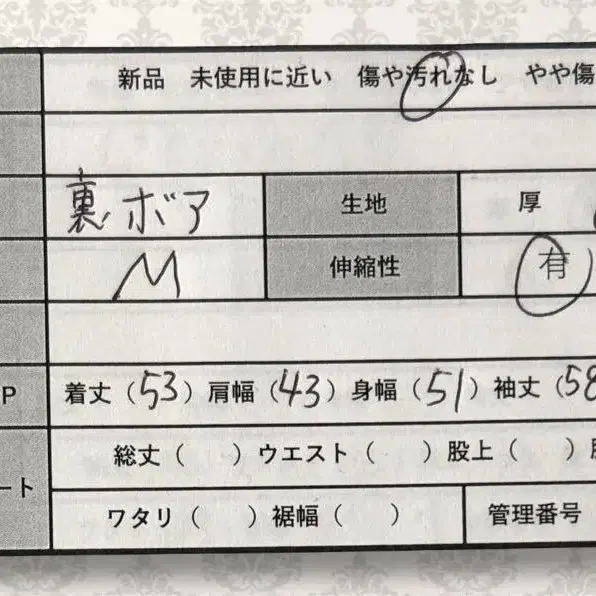 新品 未使用に近い 傷や汚れなし やや傷
裏ボア 生地 厚
M 伸縮性 有
P 着丈（53）肩幅（43）身幅（51）袖丈（58
総丈（ ）ウエスト（ ）股上（ ）
ート
ワタリ（ ）裾幅（ ） 管理番号